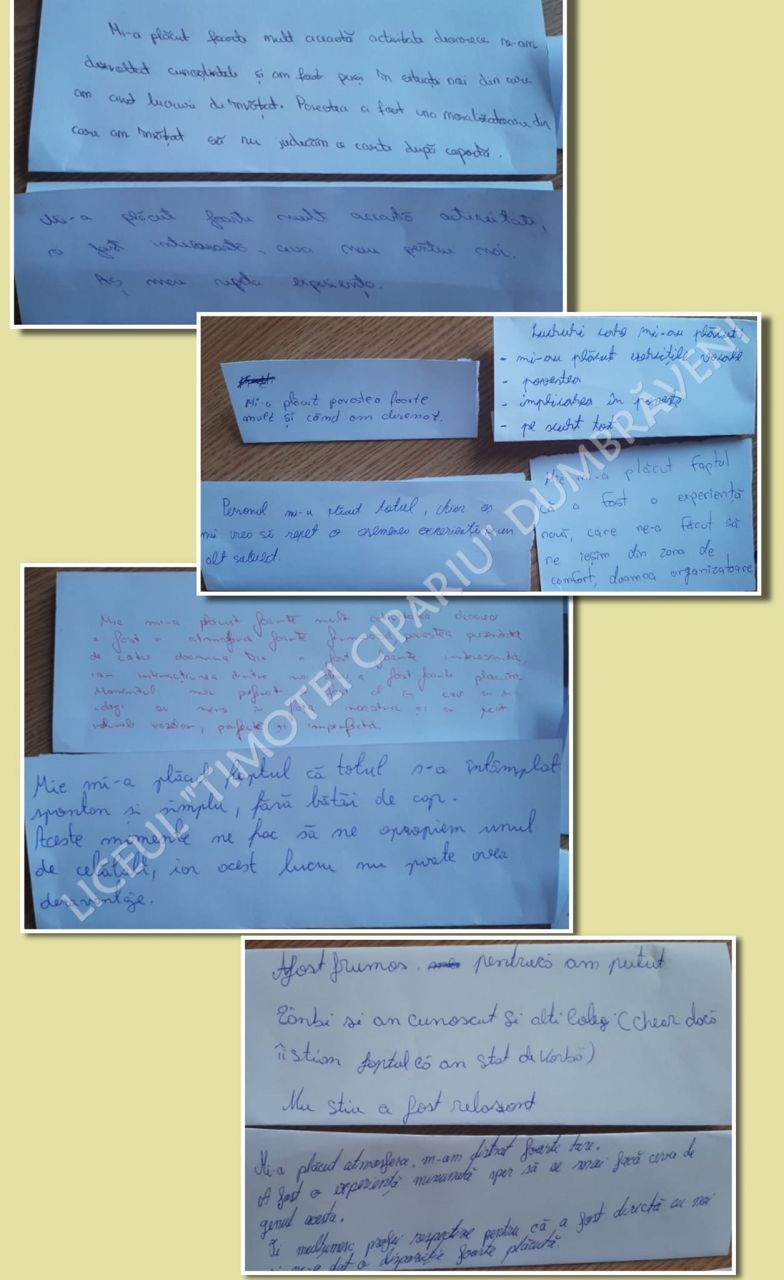 Mi-a plăcut foarte mult această activitate deoarece ne-am
dezvoltat cunoștințele și am fost puși în situații noi din care
am avut lucruri de învățat. Povestea a fost una moralizatoare din
care am învățat să nu judecăm o carte după copertă.
Mi-a plăcut foarte mult această activitate,
a fost interesantă, ceva nou pentru noi.
Aș mai repeta experiența.
Mi-a plăcut povestea foarte
mult și când am desenat.
Lucruri care mi-au plăcut:
- mi-au plăcut exercițiile vocale
- povestea
- implicarea în poveste
- pe scurt tot
Personal mi-a plăcut totul, chiar aș
mai vrea să repet o asemenea experiență cu un
alt subiect.
Mie mi-a plăcut faptul
că a fost o experiență
nouă, care ne-a făcut să
ne ieșim din zona de
comfort, doamna organizatoare
Mie mi-a plăcut foarte mult activitatea deoarece
a fost o atmosferă foarte frumoasă, povestea prezentată
de către doamna a fost foarte interesantă,
iar interacțiunea dintre noi a fost foarte plăcută.
Momentul meu preferat a fost el în care
colegi au mers în fața noastră și au jucat
vaselor, perfectă și imperfectă.
Mie mi-a plăcut faptul că totul s-a întâmplat
spontan si simplu, fără bătăi de cap.
Aceste momente ne fac să ne apropiem unul
de celălalt, iar acest lucru nu poate avea
dezavantaje.
A fost frumos. pentrucă am putut
si an cunoscut și alti colegi (chear dacă
îi stiam faptul că an stat de vorbă)
Nu stiu a fost relaxant
Mi-a plăcut atmosfera, m-am distrat foarte tare.
A fost o experiență minunată sper să se mai facă ceva de
genul acesta.
Îi mulțumesc profei respective pentru că a fost directă cu noi
și ne-a dat o dispoziție foarte plăcută.
LICEUL "TIMOTEI CIPARIU" DUMBRĂVENI